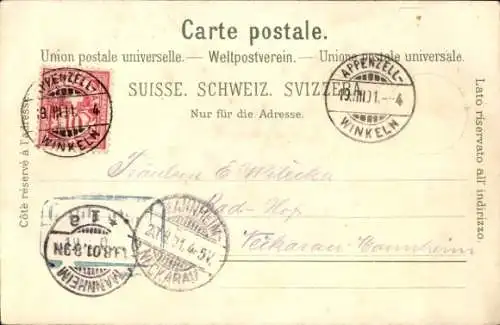 Carte postale.
Union postale universelle. — Weltpostverein. — Unione postale universale.
SUISSE. SCHWEIZ. SVIZZERA.
Nur für die Adresse.
Côté réservé à l'adresse.
Lato riservato all' indirizzo.
APPENZELL-
19.III.01. - 4
WINKELN
APPENZELL-
19.III.01. - 4
WINKELN
Fräulein E
Bad-Hof
Neckarau-Mannheim
MANNHEIM
NECKARAU
MANNHEIM